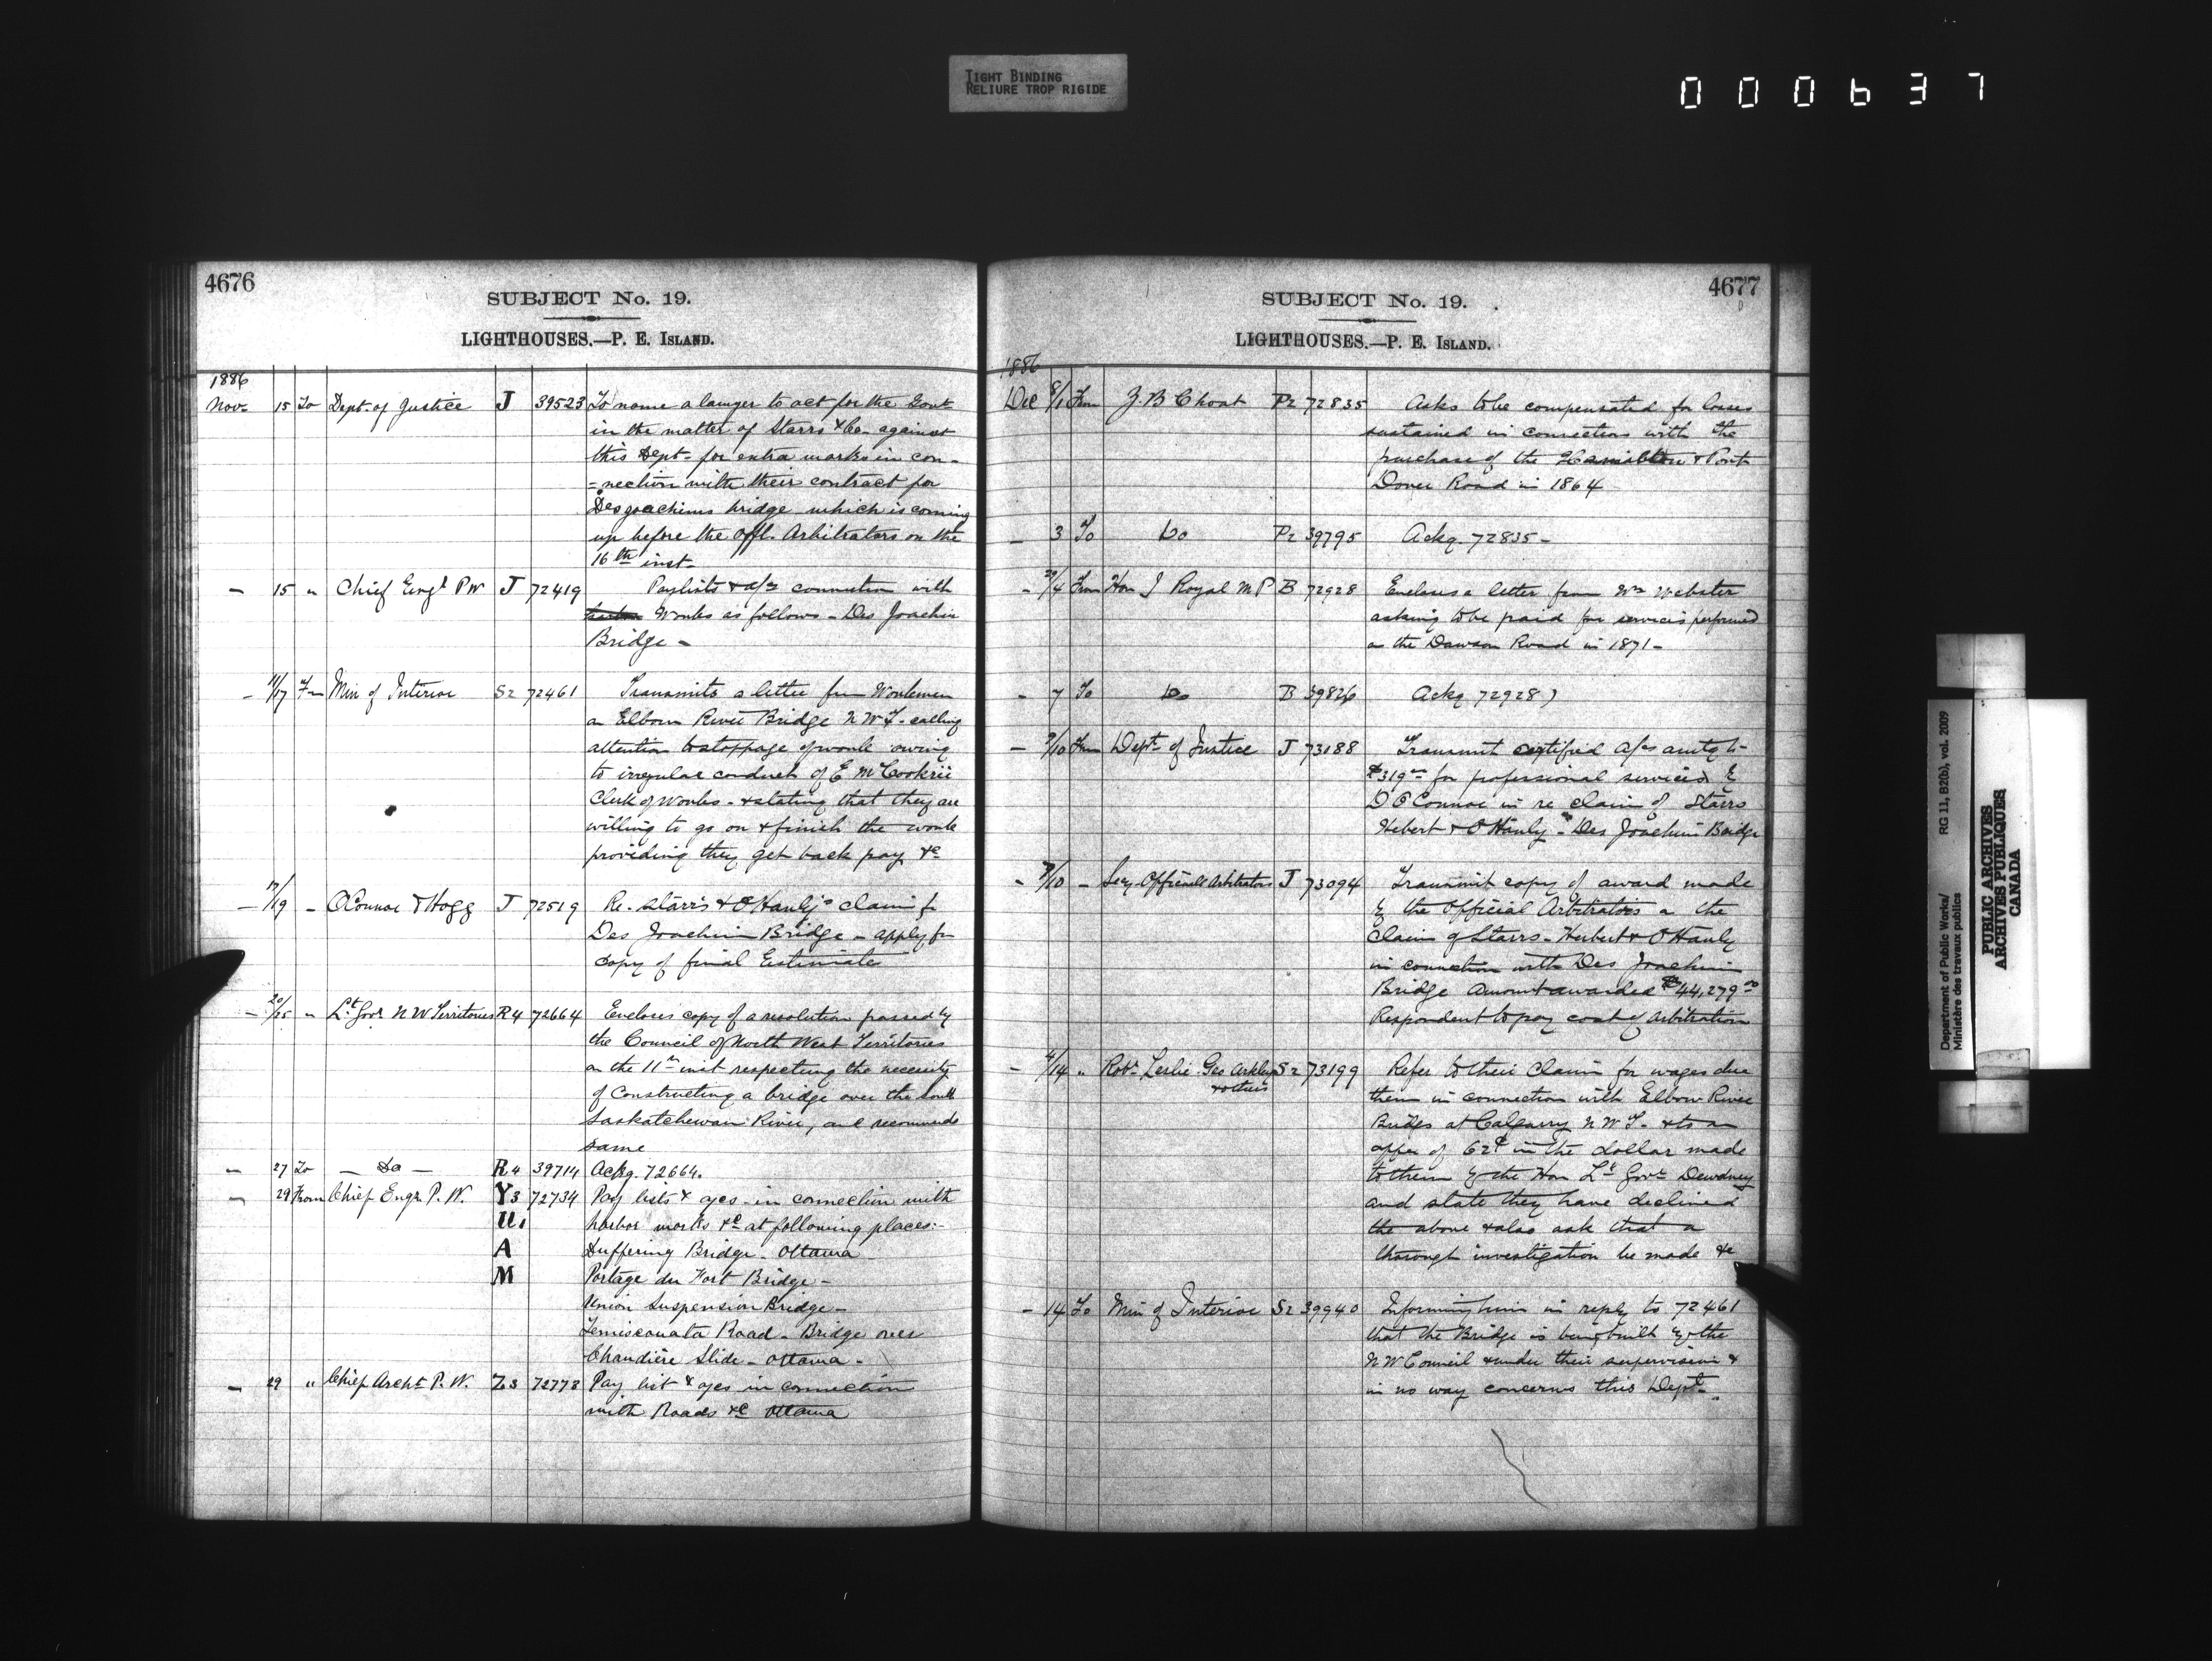 TIGHT BINDING
RELIURE TROP RIGIDE
000637
4676
SUBJECT No. 19.
LIGHTHOUSES.—P. E. ISLAND.
1886
Nov. 15 To Dept. of Justice J 39523 To name a lawyer to act for the Govt
in the matter of Starrs & Co. against
this Dept. for extra works in con-
=nection with their contract for
Desjoachims bridge which is coming
up before the Offl. Arbitrators on the
16th inst-
- 15 " Chief Engr P W J 72419 Paylists & a/cs connection with
Works as follows - Des Joachim
Bridge -
- 11/17 Fm Min of Interior S2 72461 Transmits a letter from Workmen
on Elbow River Bridge N W T. calling
attention to stoppage of work owing
to irregular conduct of E
Clerk of Works - & stating that they are
willing to go on & finish the work
providing they get back pay &c
- 17/19 - OConnor & Hogg J 72519 Re. Starrs & O'Hanly's claim for
Des Joachim Bridge - apply for
copy of final Estimates
- 20/25 " Lt. Govr N W Territories R4 72664 Encloses copy of a resolution passed by
the Council of North West Territories
on the 11th inst respecting the necessity
of Constructing a bridge over the South
Saskatchewan River, and recommends
same
- 27 To - Do - R4 39714 Ackg. 72664.
- 29 From Chief Engr. P. W. Y3 72734 Pay lists & a/cs - in connection with
U. harbor works &c at following places:-
A Duffering Bridge - Ottawa
M Portage du Fort Bridge -
Union Suspension Bridge -
Temiscouata Road - Bridge over
Chaudière Slide - Ottawa -
- 29 " Chief Archt. P. W. Z3 72778 Pay list & a/cs in connection
with Roads &c Ottawa
4677
SUBJECT No. 19.
LIGHTHOUSES.—P. E. ISLAND.
1886
Dec 8/1 From J. B Choat P2 72835 Asks to be compensated for losses
sustained in connection with the
purchase of the Hamilton & Port
Dover Road in 1864
- 3 To Do P2 39795 Ackg. 72835 -
- 29/4 From Hon J Royal M P B 72928 Encloses a letter from Wm Webster
asking to be paid for services performed
on the Dawson Road in 1871 -
- 7 To Do B 39826 Ackg 72928)
- 9/10 From Dept. of Justice J 73188 Transmit certified a/cs amtg to
$319 for professional services by
D O'Connor in re claim of Starrs
Hebert & O'Hanly - Des Joachim Bridge
- 8/10 - Secy. Official Arbitrators J 73094 Transmit copy of award made
by the Official Arbitrators on the
Claim of Starrs - Herbert & O'Hanly
in connection with Des Joachim
Bridge Amount awarded $44,279
Respondent to pay cost of arbitration
- 4/14 " Robt. Leslie Geo Arkley S2 73199 Refer to their Claim for wages due
& others them in connection with Elbow River
Bridge at Calgarry N W T. & to an
offer of 62¢ in the dollar made
to them by the Hon Lt Govr Dewdney
and state they have declined
the above & also ask that a
thorough investigation be made &c
- 14 To Min of Interior S2 39940 Informing him in reply to 72461
that the Bridge is being built by the
N W Council & under their supervision &
in no way concerns this Dept.
Department of Public Works/
Ministère des travaux publics
RG 11, B2(b), vol. 2009
PUBLIC ARCHIVES
ARCHIVES PUBLIQUES
CANADA